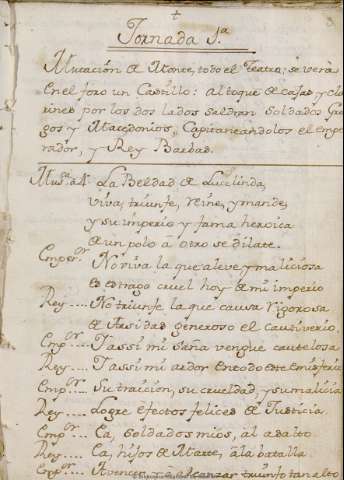 Jornada 1.ª
Mutación de Monte, todo el Teatro; se verá
en el foro un Castillo: al toque de cajas y cla
rines por los dos lados saldran Soldados Grie
gos y Macedonios, Capitaneandolos el empe
rador, y Rey Barbad.
Mus.ª á 4.. La Beldad de Lucelinda,
viva, triunfe, reine, y mande,
y su imperio y fama heroica
de un polo á otro se dilate.
Emper.or No viva la que aleve y maliciosa
es estrago cruel hoy de mi imperio
Rey.... No triunfe la que causa rigorosa
de Arsidas generoso el cautiverio.
Emp.or Y assi mi saña vengue cautelosa
Rey.... Y assi mi ardor en todo este emisferio
Emp.or Su traicion, su crueldad, y su malicia
Rey.... Logre efectos felices de Justicia.
Emp.or Ea, soldados mios, al asalto.
Rey.... Ea, hijos de Marte, á la batalla.
Emp.or A vencer, y á alcanzar triunfo tan alto